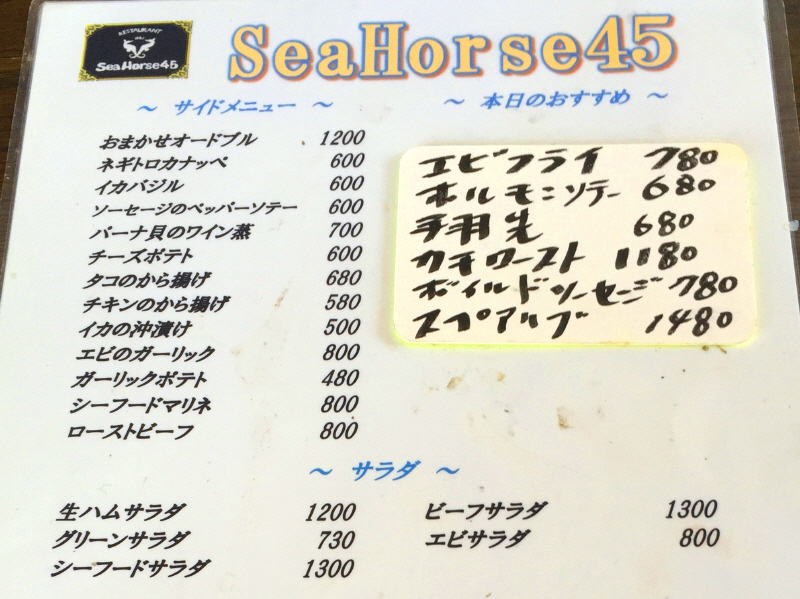 RESTAURANT
SeaHorse45
SeaHorse45
～ サイドメニュー ～
おまかせオードブル 1200
ネギトロカナッペ 600
イカバジル 600
ソーセージのペッパーソテー 600
パーナ貝のワイン蒸 700
チーズポテト 600
タコのから揚げ 680
チキンのから揚げ 580
イカの沖漬け 500
エビのガーリック 800
ガーリックポテト 480
シーフードマリネ 800
ローストビーフ 800
～ 本日のおすすめ ～
エビフライ 780
ホルモンソテー 680
手羽先 680
カモロースト 1180
ボイルドソーセージ 780
スペアリブ 1480
～ サラダ ～
生ハムサラダ 1200
グリーンサラダ 730
シーフードサラダ 1300
ビーフサラダ 1300
エビサラダ 800